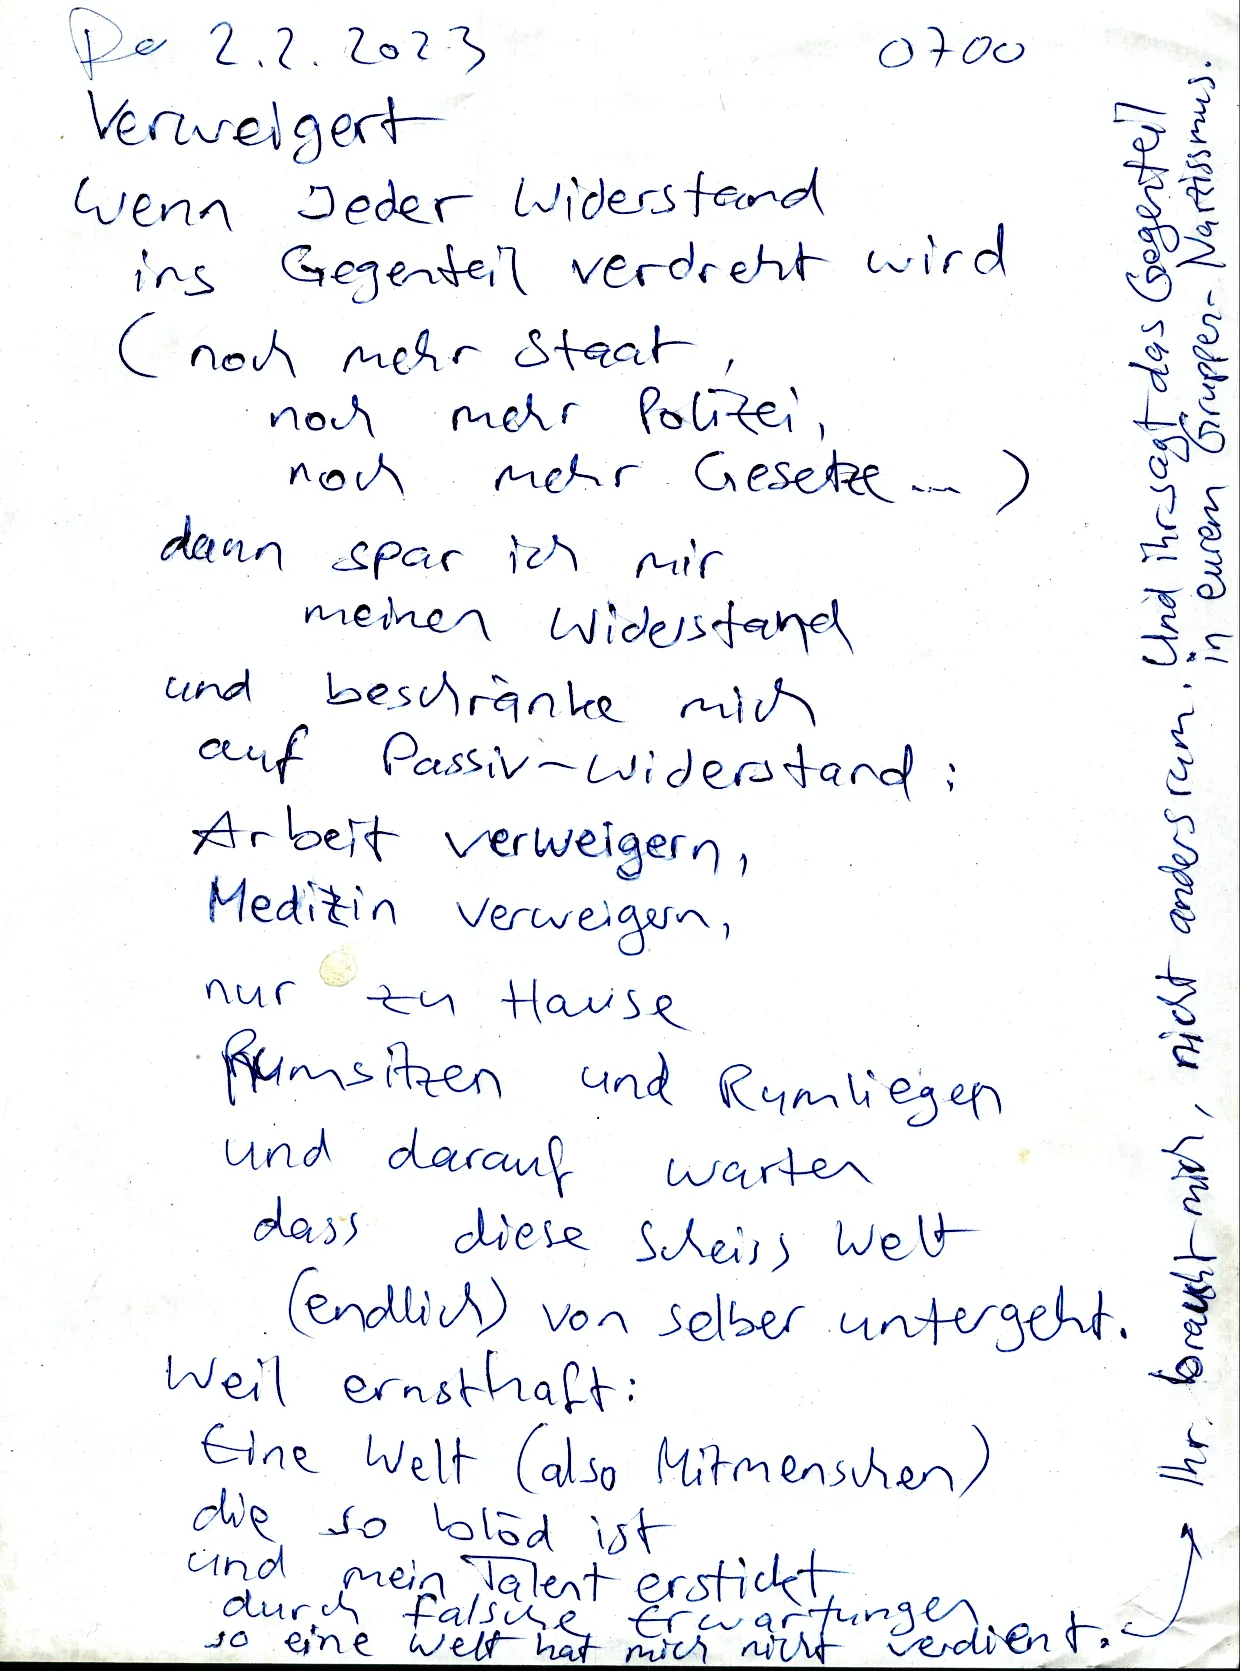 Do 2.2.2023 0700
Verweigert
Wenn Jeder Widerstand
ins Gegenteil verdreht wird
(noch mehr Staat,
noch mehr Polizei,
noch mehr Gesetze...)
dann spar ich mir
meinen Widerstand
und beschränke mich
auf Passiv-Widerstand:
Arbeit verweigern,
Medizin verweigern,
nur zu Hause
Rumsitzen und Rumliegen
und darauf warten
dass diese Scheiss Welt
(endlich) von selber untergeht.
Weil ernsthaft:
Eine Welt (also Mitmenschen)
die so blöd ist
und mein Talent erstickt
durch falsche Erwartungen
so eine Welt hat mich nicht verdient.
Ihr braucht mich, nicht andersrum. Und ihr sagt das Gegenteil
in eurem Gruppen-Narzissmus.